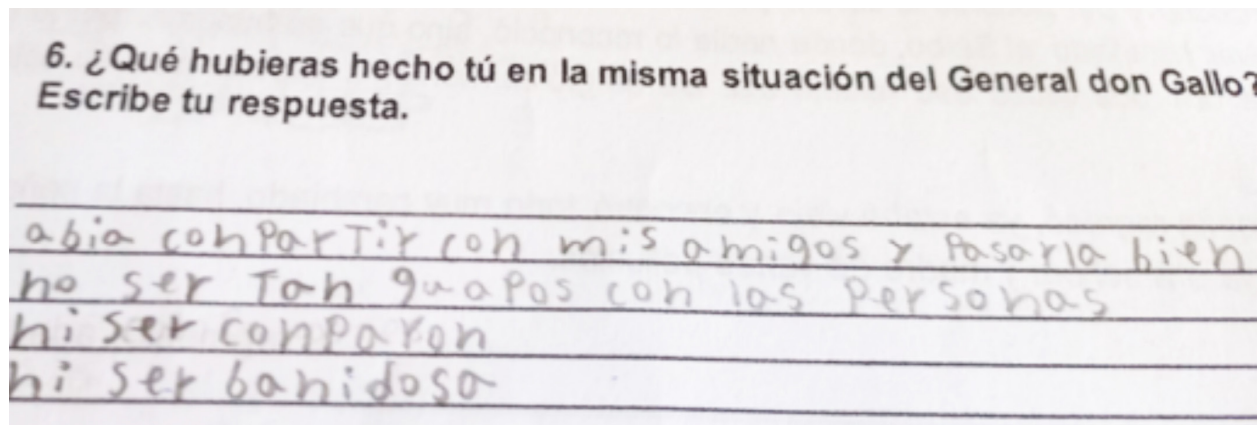 6. ¿Qué hubieras hecho tú en la misma situación del General don Gallo?
Escribe tu respuesta.
abia conpartir con mis amigos y pasarla bien
no ser tan guapos con las personas
ni ser conparon
ni ser banidosa